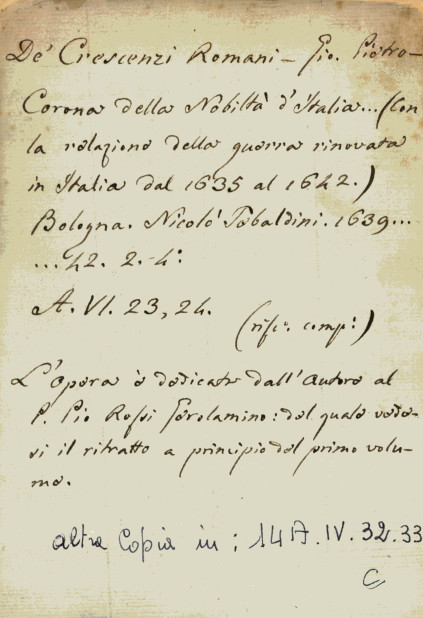 De' Crescenzi Romani - Gio. Pietro -
Corona della Nobiltà d'Italia... (Con
la relazione della guerra rinovata
in Italia dal 1635 al 1642.)
Bologna. Nicolò Tebaldini. 1639...
... 42. 2. 4°.
A. VI. 23, 24.
(rifi. comp.)
L'Opera è dedicata dall'Autore al
P. Pio Rossi Gerolamino: del quale vede-
si il ritratto a principio del primo volu-
me.
altra copia in: 14 A. IV. 32. 33
C